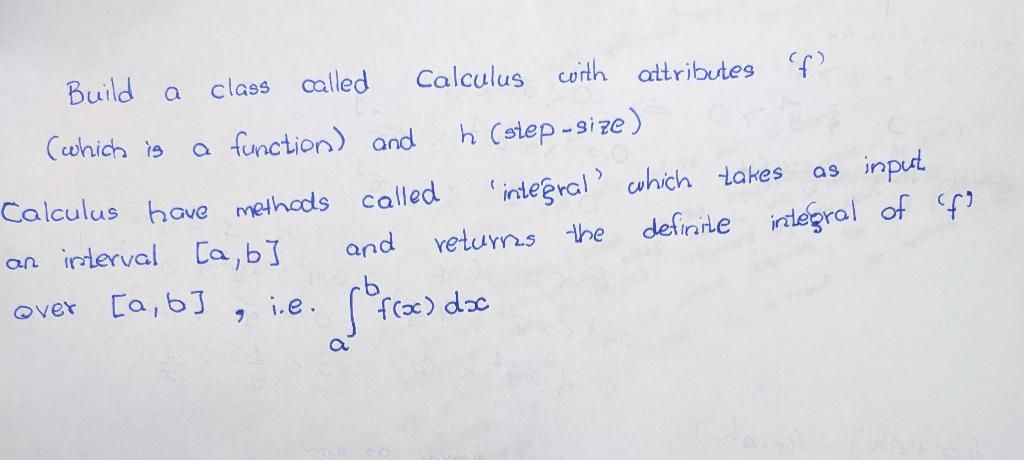 Build a class called Calculus with attributes 'f'
(which is a function) and h (step-size)
Calculus have methods called 'integral' which takes as input
an interval [a,b] and returns the definite integral of 'f'
over [a,b] , i.e. ∫ₐᵇ f(x) dx